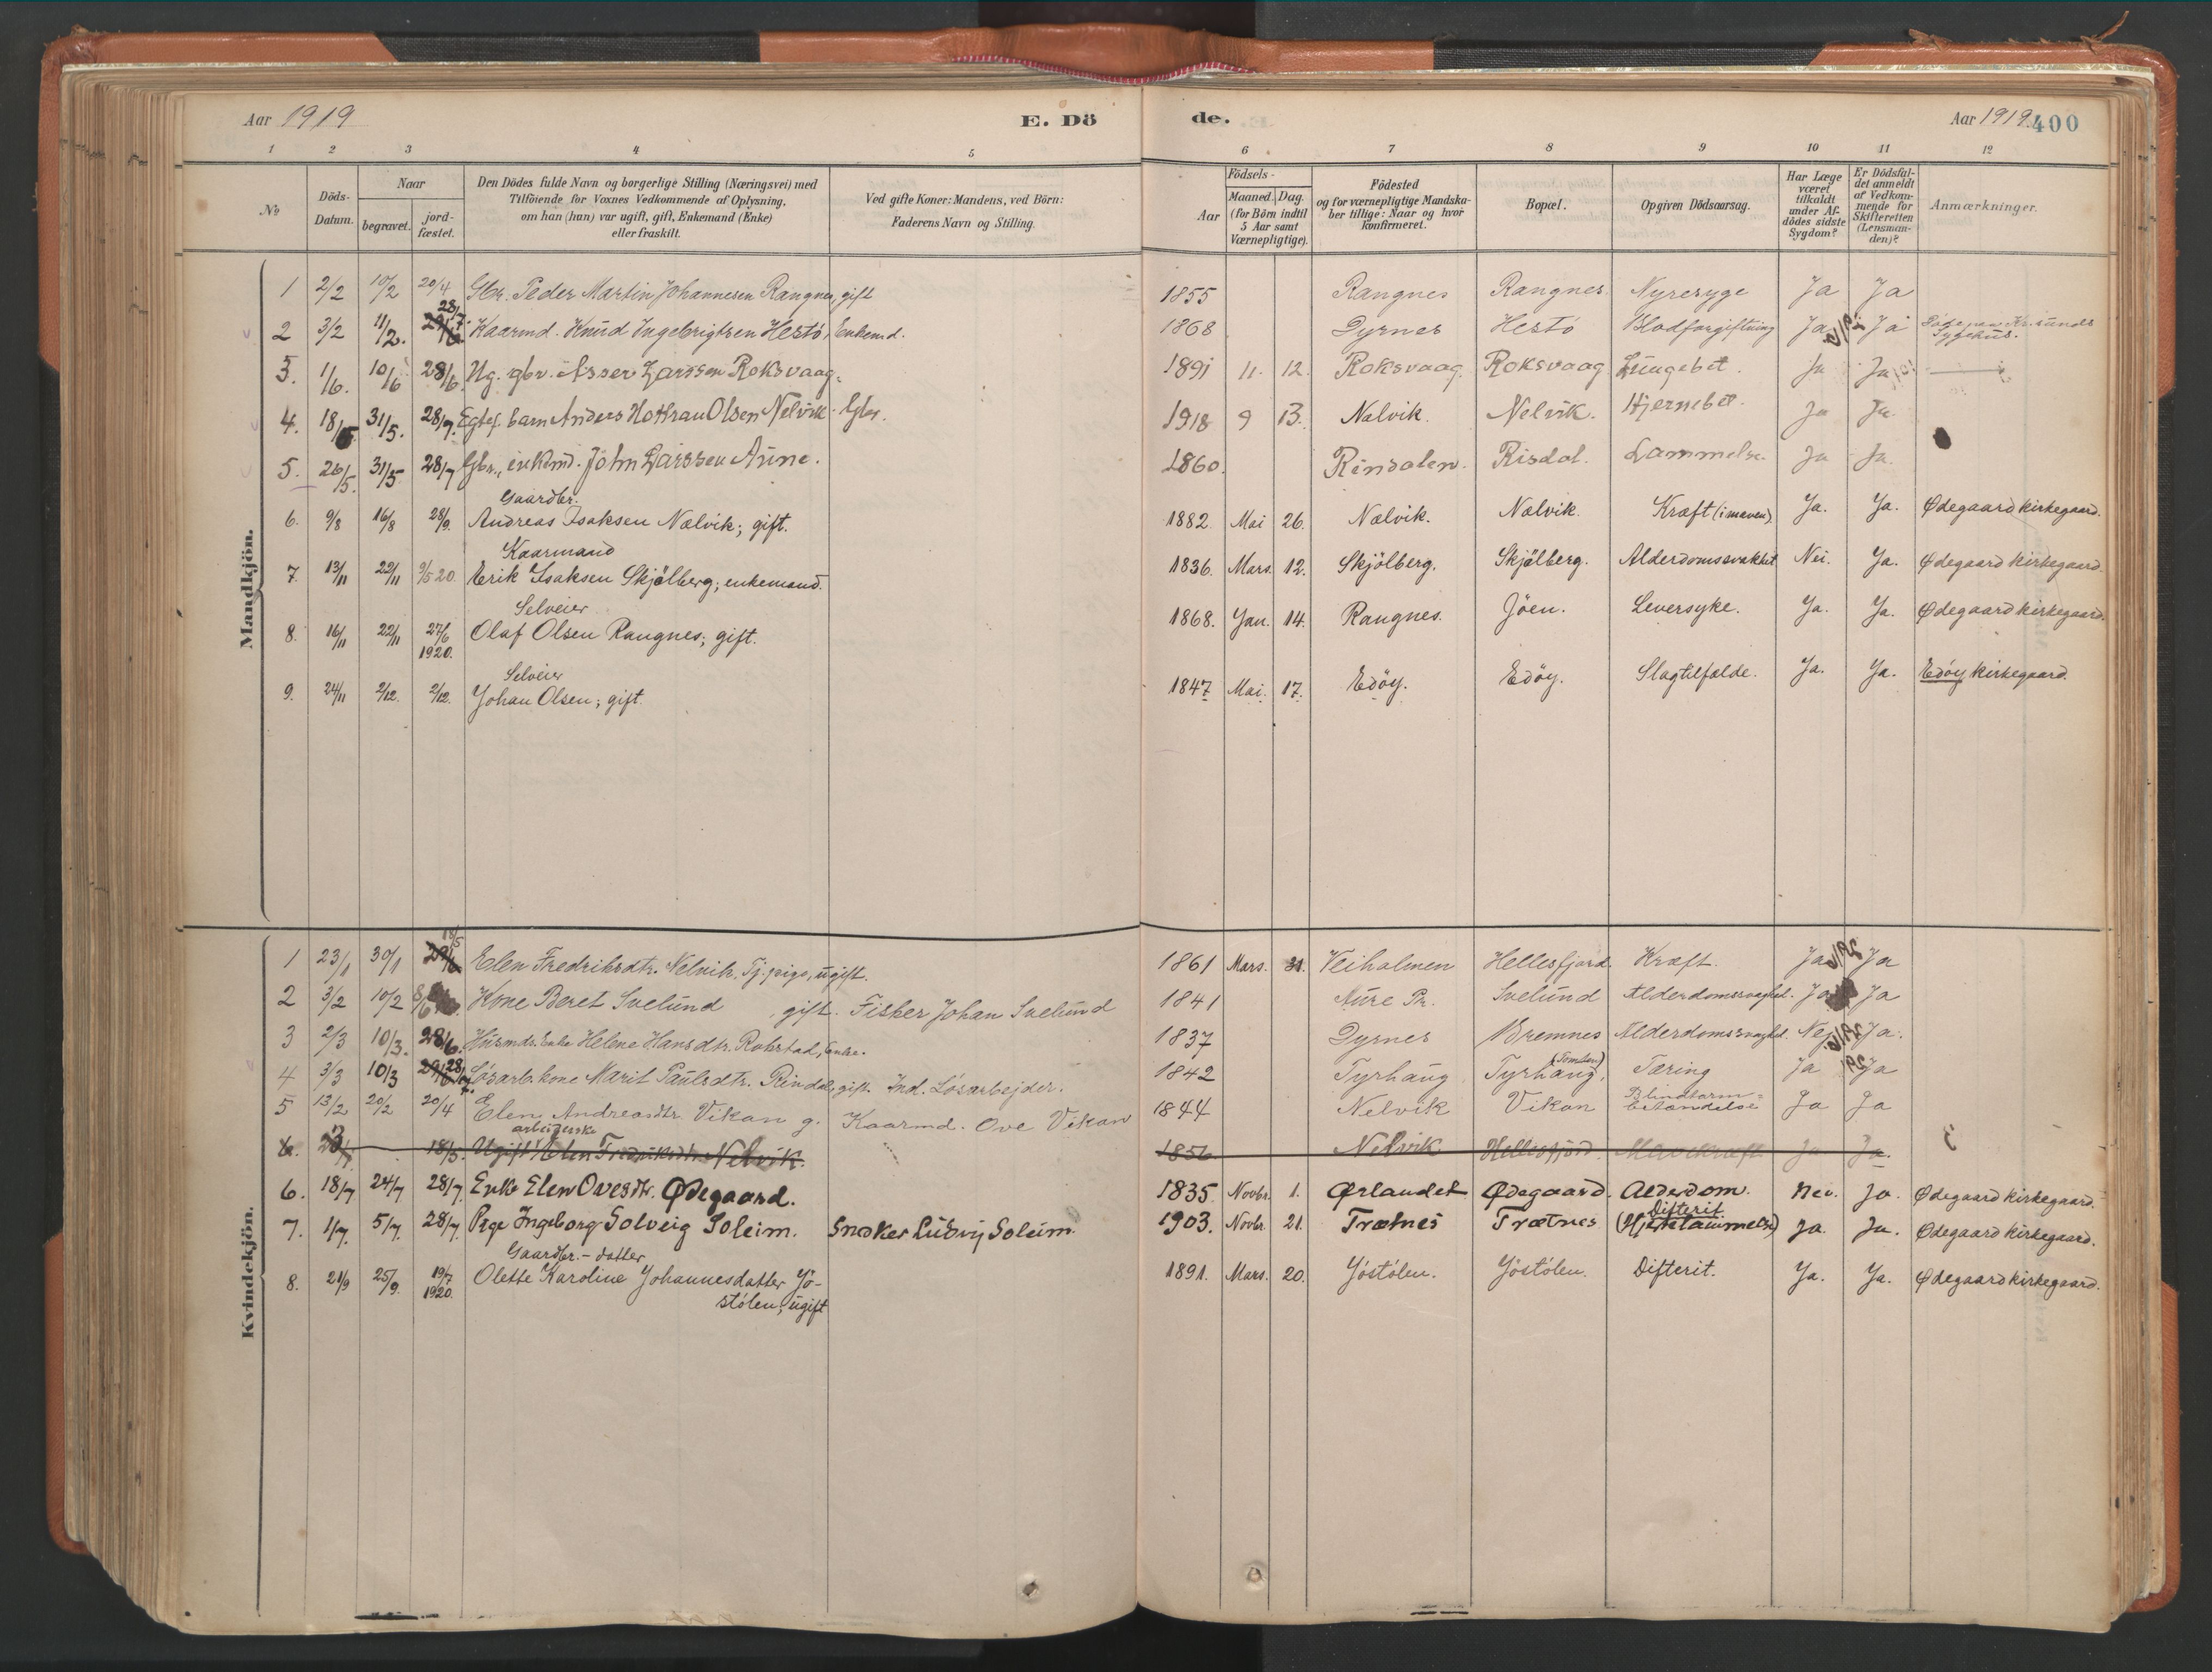 Aar 1919 E. Dö de. Aar 1919. 400
1 2 3 4 5 6 7 8 9 10 11 12
№
Döds-Datum.
Naar
begravet.
jord-fæstet.
Den Dödes fulde Navn og borgerlige Stilling (Næringsvei) med
Tilföiende for Voxnes Vedkommende af Oplysning,
om han (hun) var ugift, gift, Enkemand (Enke)
eller fraskilt.
Ved gifte Koner: Mandens, ved Börn:
Faderens Navn og Stilling.
Födsels-
Aar
Maaned. Dag.
(for Börn indtil
5 Aar samt
Værnepligtige).
Födested
og for værnepligtige Mandska-
ber tillige: Naar og hvor
konfirmeret.
Bopæl.
Opgiven Dödsaarsag.
Har Læge
været
tilkaldt
under Af-
dödes sidste
Sygdom?
Er Dödsfal-
det anmeldt
af Vedkom-
mende for
Skifteretten
(Lensman-
den)?
Anmærkninger.
Mandkjön.
1 2/2 10/2 20/4 Gbr. Peder Martin Johannesen Rangnes, gift 1855 Rangnes Rangnes. Nyresyge Ja Ja
2 3/2 11/2. 28/7. Kaarmd. Knud Ingebrigtsen Hestö, Enkemd. 1868 Dyrnes Hestö Blodforgiftning Ja Ja
3. 1/6. 10/6 28/6. Ug. gbr. Asser Larssen Roksvaag. 1891 11. 12. Roksvaag. Roksvaag Lungebet. Ja Ja
4. 18/5. 31/5. 28/7. Egtef. barn Anders Hothran Olsen Nelvik. Gbr. 1918 9 13. Nelvik. Nelvik. Hjernebet. Ja Ja
5. 26/5. 31/5 28/7 Gbr., enkemd. John Larssen Aune. 1860. Rindalen. Risdal. Lammelse. Ja Ja.
Gaardbr.
6. 9/8 16/8 28/9. Andreas Isaksen Nælvik; gift. 1882. Mai 26. Nælvik. Nælvik. Kræft (i maven). Ja. Ja. Ødegaard kirkegaard.
Kaarmand
7. 13/11 22/11 9/5 20. Erik Isaksen Skjölberg; enkemand. 1836. Mars. 12. Skjölberg. Skjölberg. Alderdomssvakhet Nei. Ja. Ødegaard kirkegaard.
Selveier
8. 16/11 22/11 27/6 1920. Olaf Olsen Rangnes; gift. 1868. Jan. 14. Rangnes. Jöen. Leversyke. Ja. Ja. Ødegaard kirkegaard.
Selveier
9. 24/11 2/12. 2/12. Johan Olsen; gift. 1847 Mai. 17. Edöy. Edöy. Slagtilfælde. Ja. Ja. Edöy kirkegaard.
Kvindekjön.
1 23/1 30/1 18/5 Elen Fredriksdtr. Nelvik. Tj. pige, ugift. 1861 Mars. 31. Veiholmen Hellesfjord. Kræft. Ja Ja
2 3/2 10/2 Kone Beret Svelund, gift. Fisker Johan Svelund 1841 Aure Pr. Svelund Alderdomssvaghet. Ja Ja
3 2/3 10/3. 28/6. Husmds. Enke Helene Hansdtr. Rokstad, Enke. 1837 Dyrnes Bremnes Alderdomssvaghet. Nej Ja.
4 3/3 10/3 28/7. Lösarb. kone Marit Paulsdtr. Rindal, gift. Ind. Lösarbejder. 1842 Tyrhaug Tyrhaug, (Tomten) Tæring Ja Ja
5 13/2 20/2 20/4 Elen Andreasdtr. Vikan g. Kaarmd. Ove Vikan 1844 Nelvik Vikan Blindtarm=betændelse Ja Ja
arbeiderske
6. 18/5. Ugift Elen Fredriksdtr. Nelvik. 1856 Nelvik Hellesfjord. Mavekræft Ja Ja.
6. 18/7 24/7 28/7. Enke Elen Ovesdtr. Ødegaard. 1835. Novbr. 1. Ørlandet Ødegaard. Alderdom. Nei. Ja. Ødegaard kirkegaard.
7. 1/7. 5/7. 28/7. Pige Ingeborg Solveig Soleim. Snedker Ludvig Soleim. 1903. Novbr. 21. Trætnes Trætnes Difterit. (Hjertelammelse) Ja. Ja. Ødegaard kirkegaard.
Gaardbr.-datter
8. 21/9 25/9. 19/7 1920. Olette Karoline Johannesdatter Jö-
stölen, ugift 1891. Mars. 20. Jöstölen. Jöstölen. Difterit. Ja. Ja. Ødegaard kirkegaard.